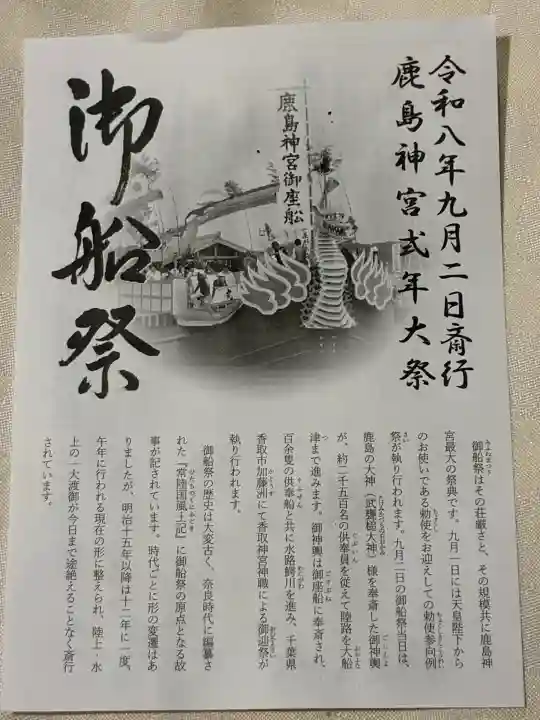 令和八年九月二日斎行
鹿島神宮式年大祭
鹿島神宮御座船
御船祭
御船祭はその荘厳さと、その規模共に鹿島神
宮最大の祭典です。九月一日には天皇陛下から
のお使いである勅使をお迎えしての勅使参向例
祭が執り行われます。九月二日の御船祭当日は、
鹿島の大神（武甕槌大神）様を奉斎した御神輿
が、約二千五百名の供奉員を従えて陸路を大船
津まで進みます。御神輿は御座船に奉斎され、
百余隻の供奉船と共に水路鰐川を進み、千葉県
香取市加藤洲にて香取神宮神職による御迎祭が
執り行われます。
御船祭の歴史は大変古く、奈良時代に編纂さ
れた『常陸国風土記』に御船祭の原点となる故
事が記されています。時代ごとに形の変遷はあ
りましたが、明治十五年以降は十二年に一度、
午年に行われる現在の形に整えられ、陸上・水
上の一大渡御が今日まで途絶えることなく斎行
されています。